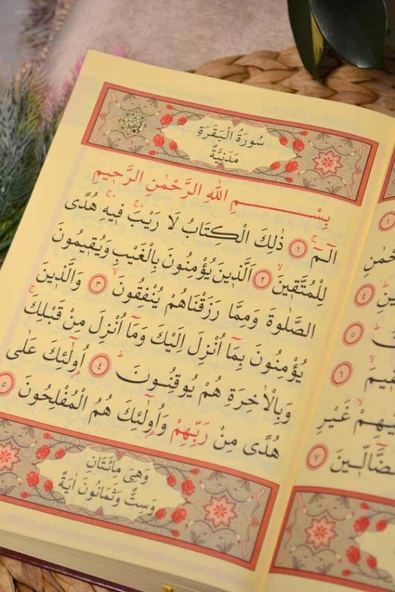 سُورَةُ الْبَقَرَةِ
مَدَنِيَّةٌ
بِسْمِ اللّٰهِ الرَّحْمٰنِ الرَّحِيمِ
الٓمٓ ۚ ١ ذٰلِكَ الْكِتَابُ لَا رَيْبَۚ فِيهِۚ هُدًى
لِلْمُتَّقِينَۙ ٢ اَلَّذِينَ يُؤْمِنُونَ بِالْغَيْبِ وَيُقِيمُونَ
الصَّلٰوةَ وَمِمَّا رَزَقْنَاهُمْ يُنْفِقُونَۙ ٣ وَالَّذِينَ
يُؤْمِنُونَ بِمَٓا اُنْزِلَ اِلَيْكَ وَمَٓا اُنْزِلَ مِنْ قَبْلِكَۚ
وَبِالْاٰخِرَةِ هُمْ يُوقِنُونَۜ ٤ اُو۬لٰٓئِكَ عَلٰى
هُدًى مِنْ رَبِّهِمْ وَاُو۬لٰٓئِكَ هُمُ الْمُفْلِحُونَ ٥
وَهِيَ مِائَتَانِ
وَسِتٌّ وَثَمَانُونَ اٰيَةً
١
٤
٥
٦
غَيْرِ
٧